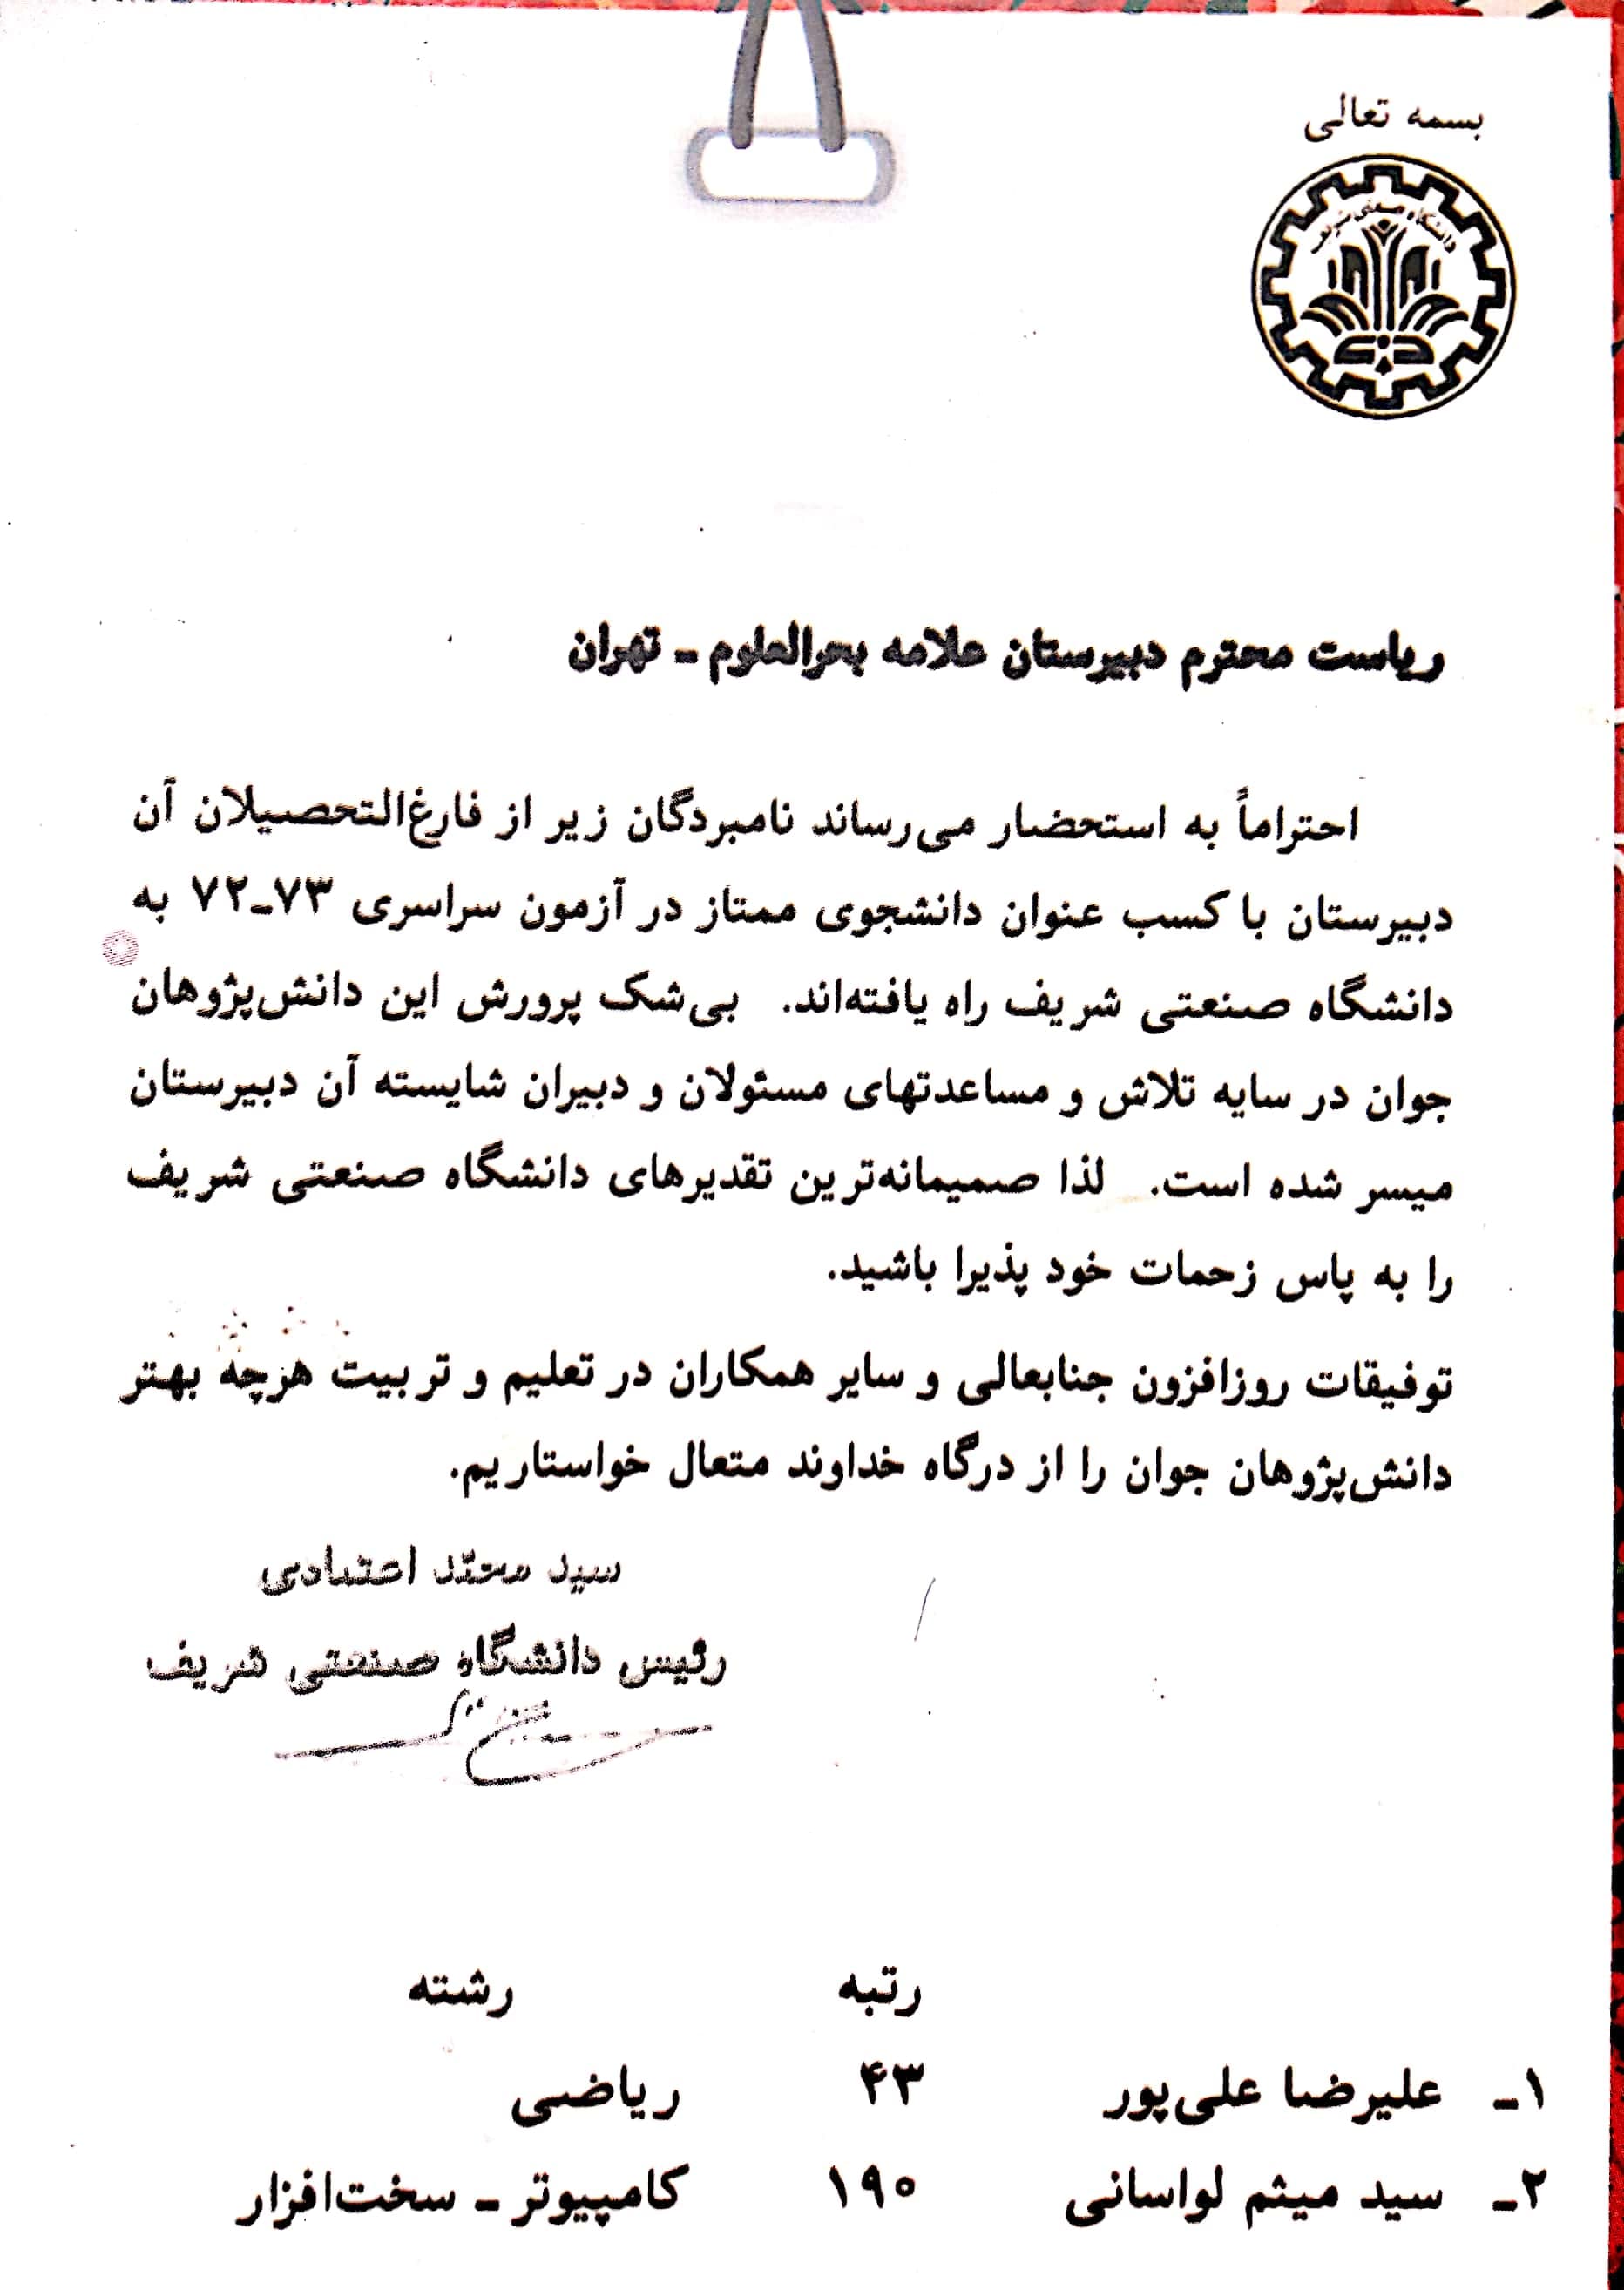 بسمه تعالی
دانشگاه صنعتی شریف
ریاست محترم دبیرستان علامه بحرالعلوم ـ تهران
احتراماً به استحضار می‌رساند نامبردگان زیر از فارغ‌التحصیلان آن
دبیرستان با کسب عنوان دانشجوی ممتاز در آزمون سراسری ۷۳ـ۷۲ به
دانشگاه صنعتی شریف راه یافته‌اند. بی‌شک پرورش این دانش‌پژوهان
جوان در سایه تلاش و مساعدتهای مسئولان و دبیران شایسته آن دبیرستان
میسر شده است. لذا صمیمانه‌ترین تقدیرهای دانشگاه صنعتی شریف
را به پاس زحمات خود پذیرا باشید.
توفیقات روزافزون جنابعالی و سایر همکاران در تعلیم و تربیت هرچه بهتر
دانش‌پژوهان جوان را از درگاه خداوند متعال خواستاریم.
سید محمّد اعتمادی
رئیس دانشگاه صنعتی شریف
رتبه رشته
۱ـ علیرضا علی‌پور ۴۳ ریاضی
۲ـ سید میثم لواسانی ۱۹۰ کامپیوتر ـ سخت‌افزار